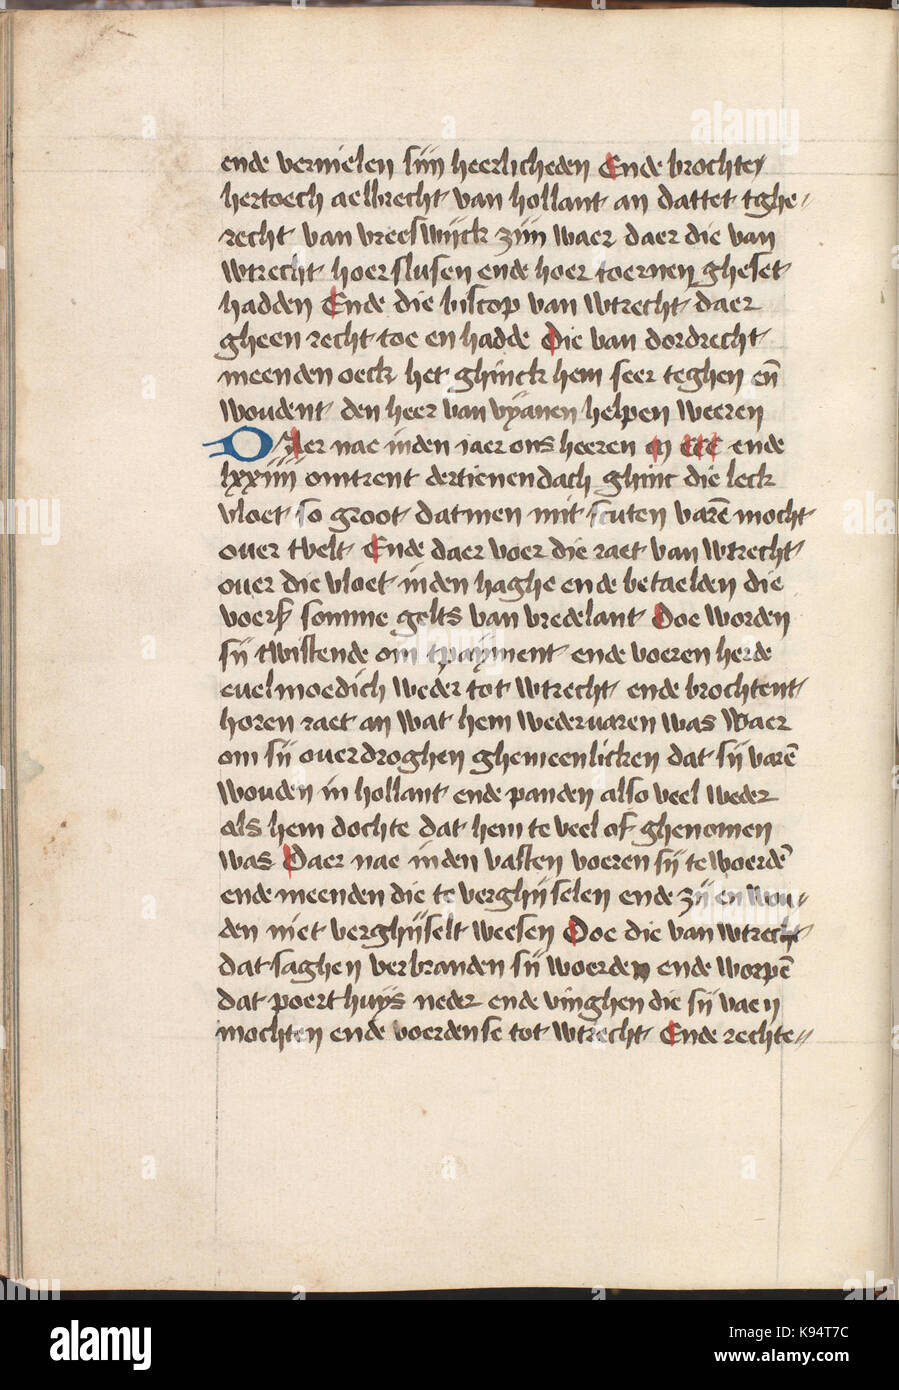 ende vernielen sijn heerlicheden Ende brochte
hertoech aelbrecht van hollant an dattet tghe-
recht van vreeswijck zijn waer daer die van
wtrecht hoer slusen ende hoer toernen gheset
hadden Ende die biscop van wtrecht daer
gheen recht toe en hadde Die van dordrecht
meenden oeck het ghinck hem seer teghen en̄
woudent den heer van vyanen helpen weeren
DAer nae inden iaer ons heeren m ccc ende
lxxiiii omtrent dertienendach ghinc die leck
vloet so groot datmen mit scuten varē mocht
ouer tvelt Ende daer voer die raet van wtrecht
ouer die vloet inden haghe ende betaelden die
voers somme gelts van vredelant Doe worden
sij twistende om tpayment ende voeren herde
euelmoedich weder tot wtrecht ende brochtent
horen raet an wat hem wedervaren was Waer
om sij ouerdroghen ghemeenlicken dat sij varē
wouden in hollant ende panden also veel weder
als hem dochte dat hem te veel of ghenomen
was Daer nae inden vasten voeren sij te woerdē
ende meenden die te verghijselen ende zij en wou-
den niet verghijselt weesen Doe die van wtrecht
dat saghen verbranden sij woerden ende worpē
dat poerthuys neder ende vinghen die sij vaen
mochten ende voerdense tot wtrecht Ende rechte-
alamy
K94T7C
www.alamy.com